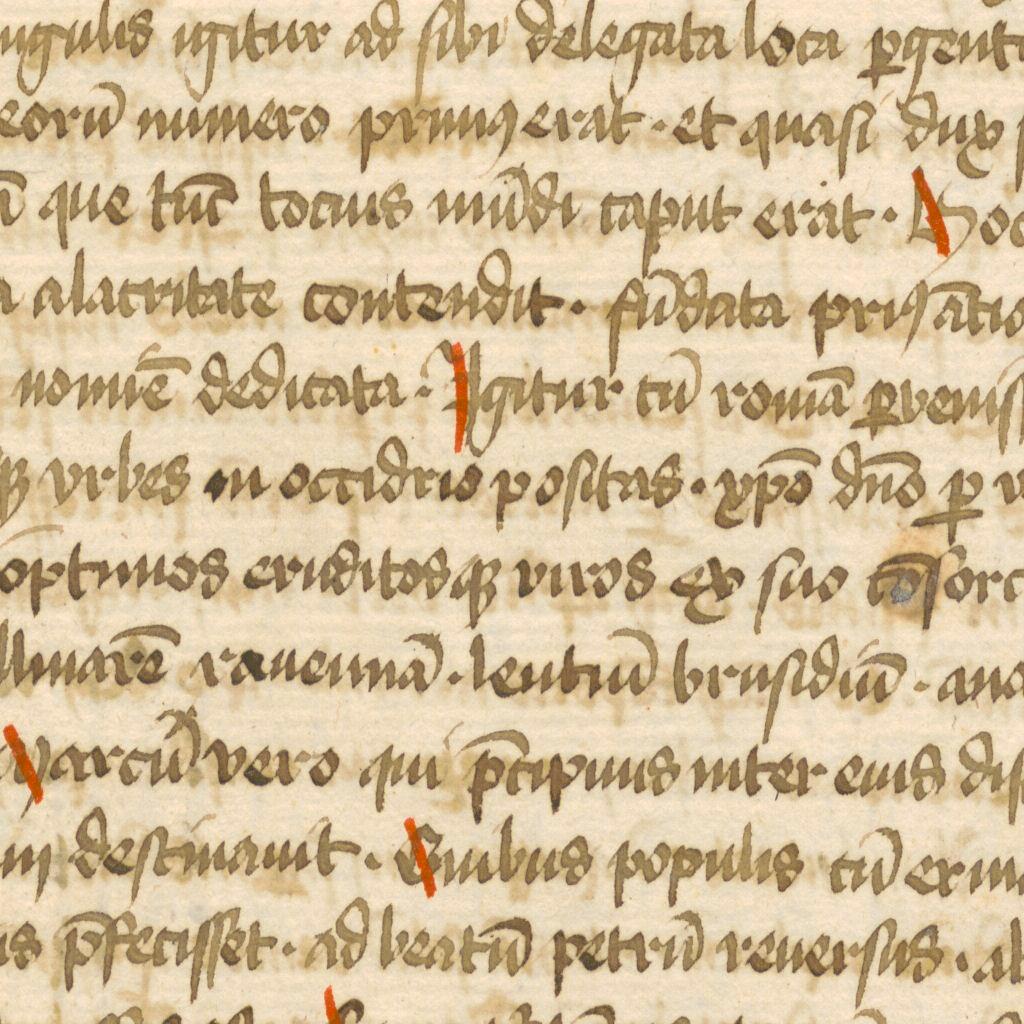 singulis igitur ad sibi delegata loca ꝑgenti
eorū numero primꝯ erat · et quasi dux
ā que tūc tocius mūdi caput erat · Hoc
a alacritate contendit · fūdata priꝯ ātio
nomīe dedicata · Igitur cū romā ꝑveniss
qꝫ vrbes in occidētio positas · xp̄o dn̄o ꝑ v
optimos eruditosqꝫ viros ex suo cōsorc
llinarē rauennā · leutiū brusidiū · ana
Marcū vero qui p̄cipuus inter eius dis
in destinauit · Quibus populis cū exim
is p̄fecisset · ad beatū petrū reuersus · ab